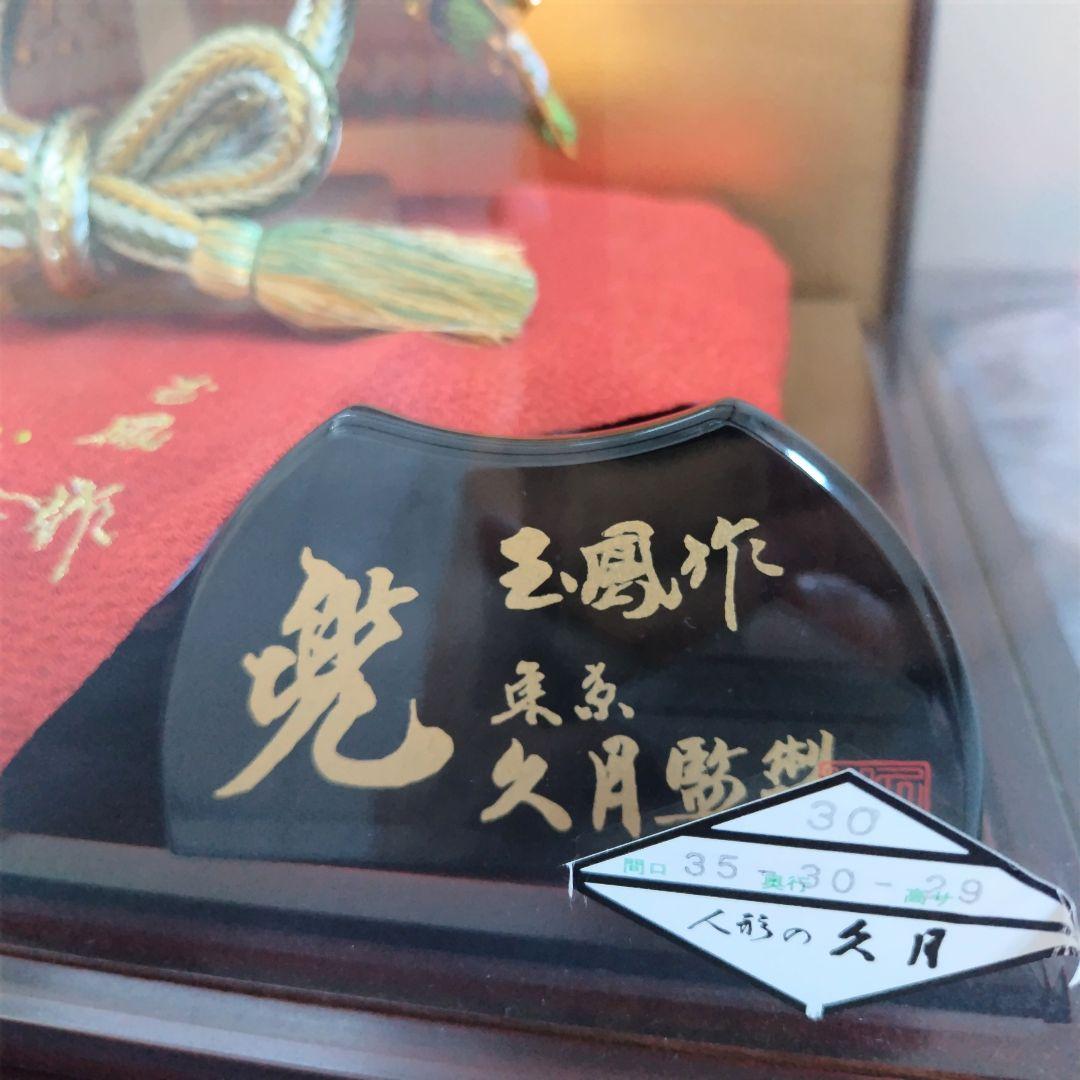 兜
玉鳳作
東京
久月監製
30
間口 35 - 奥行 30 - 高サ 29
人形の久月
作